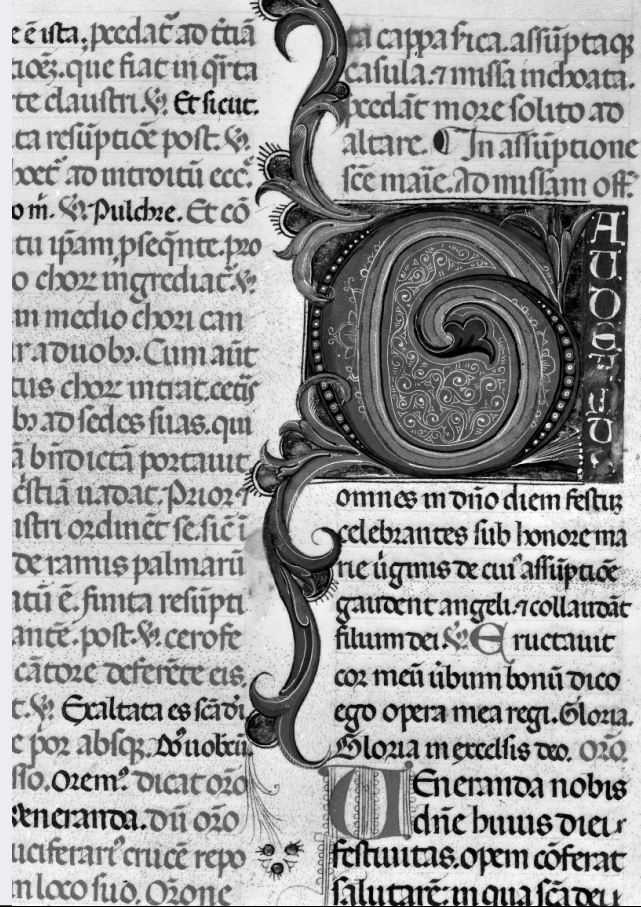 e ē ista. p̄cedat̄ ad t̄tiā
que fiat in q̄rta
te claustri. ℣. Et sicut.
ta resūptiōe post. ℣.
ad introitū ecc̄.
o m̄. ℣. Pulchre. Et cō
tu ip̄am p̄seq̄nte. pro
o choꝝ ingrediat̄. ℣.
in medio chori can
r a duobꝫ. Cum aūt
tus choꝝ intrat. cet̄is
bꝫ ad sedes suas. qui
ā bn̄dictā portauit
uadat. Prior ⁊
istri ordinēt se. sic ī
de ramis palmarū
atū ē. finita resūpti
antē. post. ℣. cerofe
cātore deferēte eis.
t. ℣. Exaltata es scā dī
e por absqꝫ. Dn̄s uobcū
sso. Oremꝰ. dicat or̄o
Veneranda. diī or̄o
uciferariꝰ crucē repo
n loco suo. Or̄one
ta cappa s̄ica. assūptaqꝫ
casula. ⁊ missa inchoata.
p̄cedāt more solito ad
altare. ¶ In assūptione
sc̄e mar̄ie. Ad missam off̄.
GAUDEAMUS
omnes in dn̄o diem festū
celebrantes sub honore ma
rie ūginis de cuiꝰ assūptiōe
gaudent angeli. ⁊ collaudāt
filium dei. ℣. Eructauit
cor meū ūbum bonū dico
ego opera mea regi. Gloria.
Gloria in excelsis deo. OR̄O.
UEneranda nobis
dn̄e huius diei
festiuitas. opem cōferat
salutarē. in qua sc̄a dei